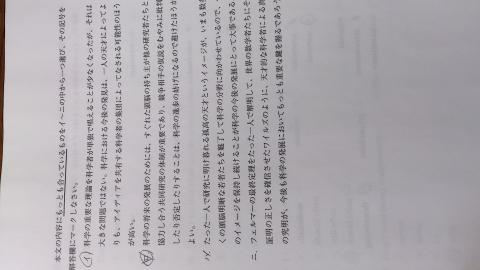 本文の内容にもっとも合っているものをイ〜ニの中から一つ選び、その記号を
解答欄にマークしなさい。
イ 科学の重要な理論を科学者が単独で唱えることが少なくなったが、それは
大きな問題ではない。科学における今後の発見は、一人の天才によってよ
りも、アイディアを共有する科学者の集団によってなされる可能性のほう
が高い。
ロ 科学の将来の発展のためには、すぐれた頭脳の持ち主が他の研究者たちと
協力し合う共同研究の体制が重要であり、競争相手の仮説をむやみに批判
したり否定したりすることは、科学の進歩の妨げになるので避けたほうが
よい。
ハ たった一人で研究に明け暮れる孤高の天才というイメージが、いまも数多
くの頭脳明晰な若者たちを魅了して科学の分野に向かわせているので、
のイメージを保持し続けることが科学の今後の発展にとって大事である
ニ、フェルマーの最終定理をたった一人で解明して、世界の数学者たちにそ
証明の正しさを確信させたワイルズのように、天才的な科学者による真
の究明が、今後も科学の発展においてもっとも重要な鍵を握るであろう